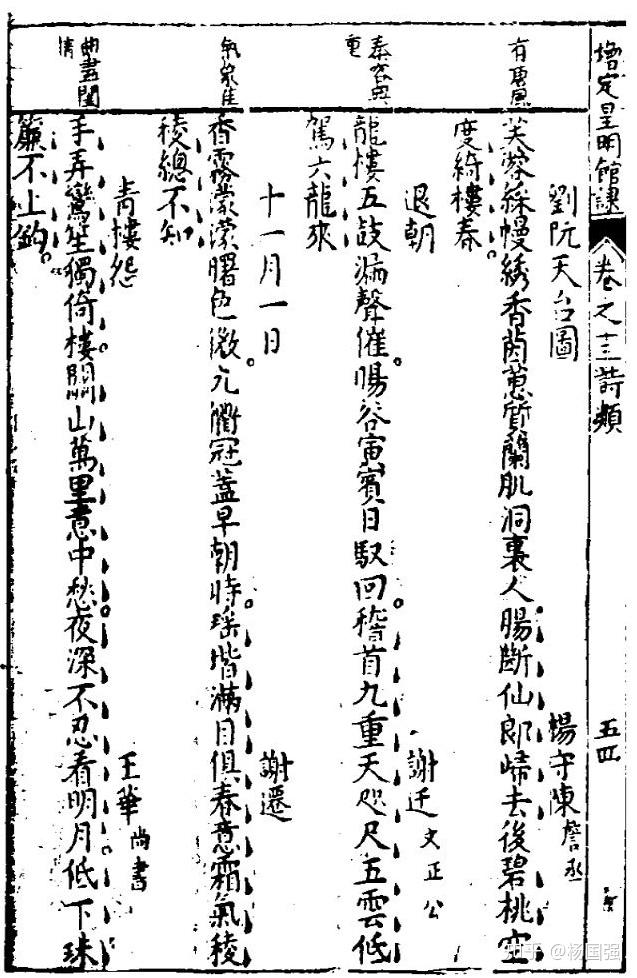 增定皇明館課 卷之十三 詩類 五四
有唐風
劉阮天台圖 楊守陳 詹丞
芙蓉綵幔綉香茵蕙質蘭肌洞裏人。腸斷仙郎歸去後碧桃空
度綺樓春。
容典重
退朝 謝迁 文正公
龍樓五鼓漏聲催。暘谷寅賓日馭回。稽首九重天咫尺五雲低
駕六龍來
氣象佳
十一月一日 謝遷
香霧濛濛曙色微。九衢冠蓋早朝時。瑤堦滿目俱春意霜氣稜
稜總不知
曲盡閨情
青樓怨 王華 尚書
手弄鸞笙獨倚樓。關山萬里意中愁。夜深不忍看明月。低下珠
簾不上鈎。
知乎 @杨国强